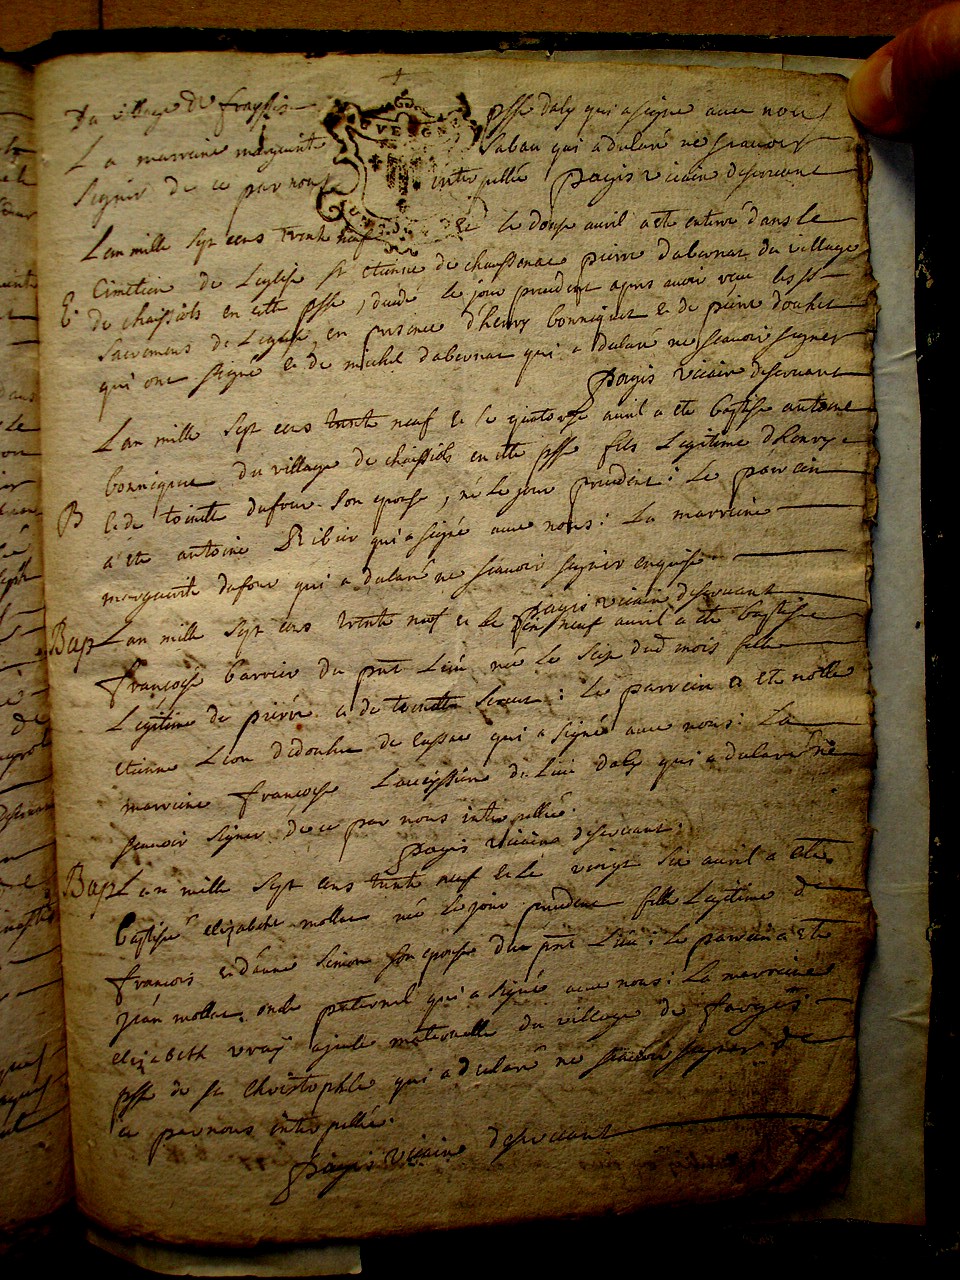 Du village de frayssis psse daly qui a signé avec nous
La marraine marguerite Labau qui a déclaré ne scavoir
signer de ce par nous interpellée pagis vicaire desservant
AUVERGNE
L'an mille sept cens trente neuf & le douse avril a eté enterré dans le
Cimetiere de L'eglise st etienne de chaussenac pierre dabernat du village
E. de chaissiols en cette psse, décédé le jour precedent apres avoir receu les sts
Sacremens de L'eglise, en presence d'henry bonniquet & de pierre douhet
qui ont signé & de michel dabernat qui a declaré ne scavoir signer
pagis vicaire desservant
L'an mille sept cens trente neuf & le quatorse avril a eté baptise antoine
bonniquet du village de chaissiols en cette psse fils Legitime d'henry
B & de toinette dufour son epouse, né le jour precedent: Le parrain
a eté antoine Ribier qui a signé avec nous: La marraine
marguerite dufour qui a declaré ne scavoir signer enquise
pagis vicaire desservant
Bap L'an mille sept cens trente neuf & le dix neuf avril a eté baptisée
francoise barrier du pnt Lieu née le seise dud mois fille
Legitime de pierre & de toinette : Le parrain a eté noble
etienne Leon de qui a signé avec nous: La
marraine francoise Laveissiere du Lieu daly qui a declaré ne
scavoir signer de ce par nous interpellée.
pagis vicaire desservant.
Bap L'an mille sept cens trente neuf & le vingt six avril a eté
baptisée elizabeth mollat née le jour precedent fille Legitime de
francois & d'anne simon son epouse du pnt Lieu: Le parrain a eté
jean mollat, oncle paternel qui a signé avec nous: La marraine
elizabeth vray ajeule maternelle du village de farges
psse de st Christophle qui a declaré ne scavoir signer de
ce par nous interpellée.
pagis vicaire desservant